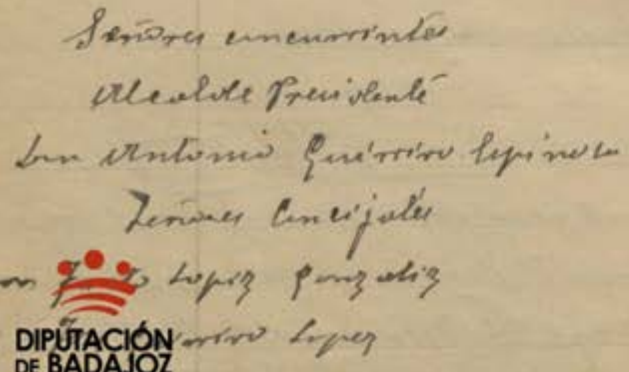 Señores concurrentes
Alcalde Presidente
Don Antonio Guerrero Espinosa
Señores Concejales
Lopez Gonzalez
Lopez
DIPUTACIÓN
DE BADAJOZ